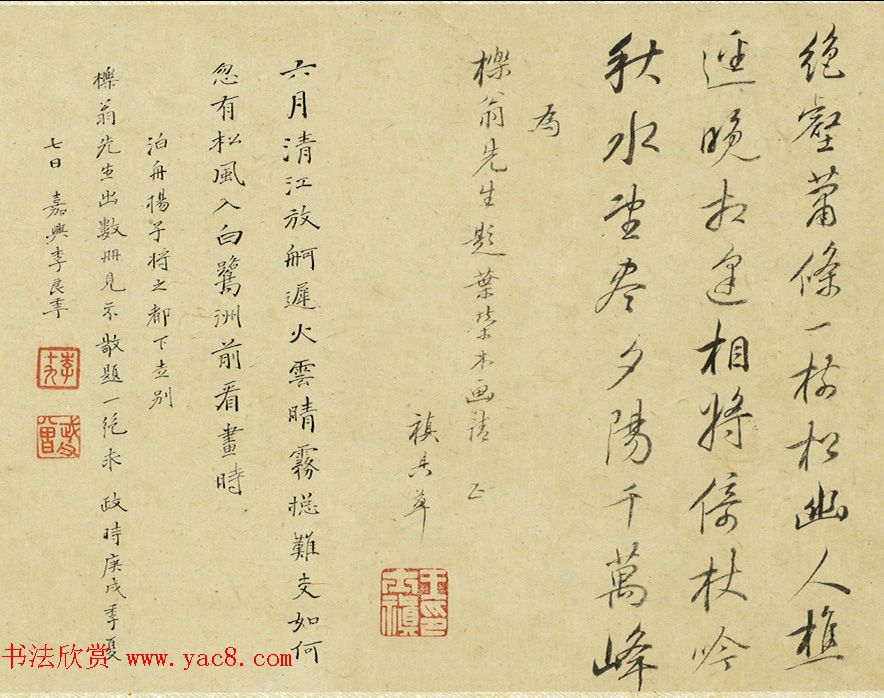 絶壑蕭條一樹松幽人樵
逕晚相逢相將倚杖吟
秋水望盡夕陽千萬峰
為
櫟翁先生題葉榮木画請 正
禛具草
六月清江放舸遲火雲晴霧總難支如何
忽有松風入白鷺洲前看畫時
泊舟揚子將之都下言別
櫟翁先生出數冊見示敬題一絕求 政時庚戌季夏
七日 嘉興李良年
李十九
武曾
书法欣赏 www.yac8.com